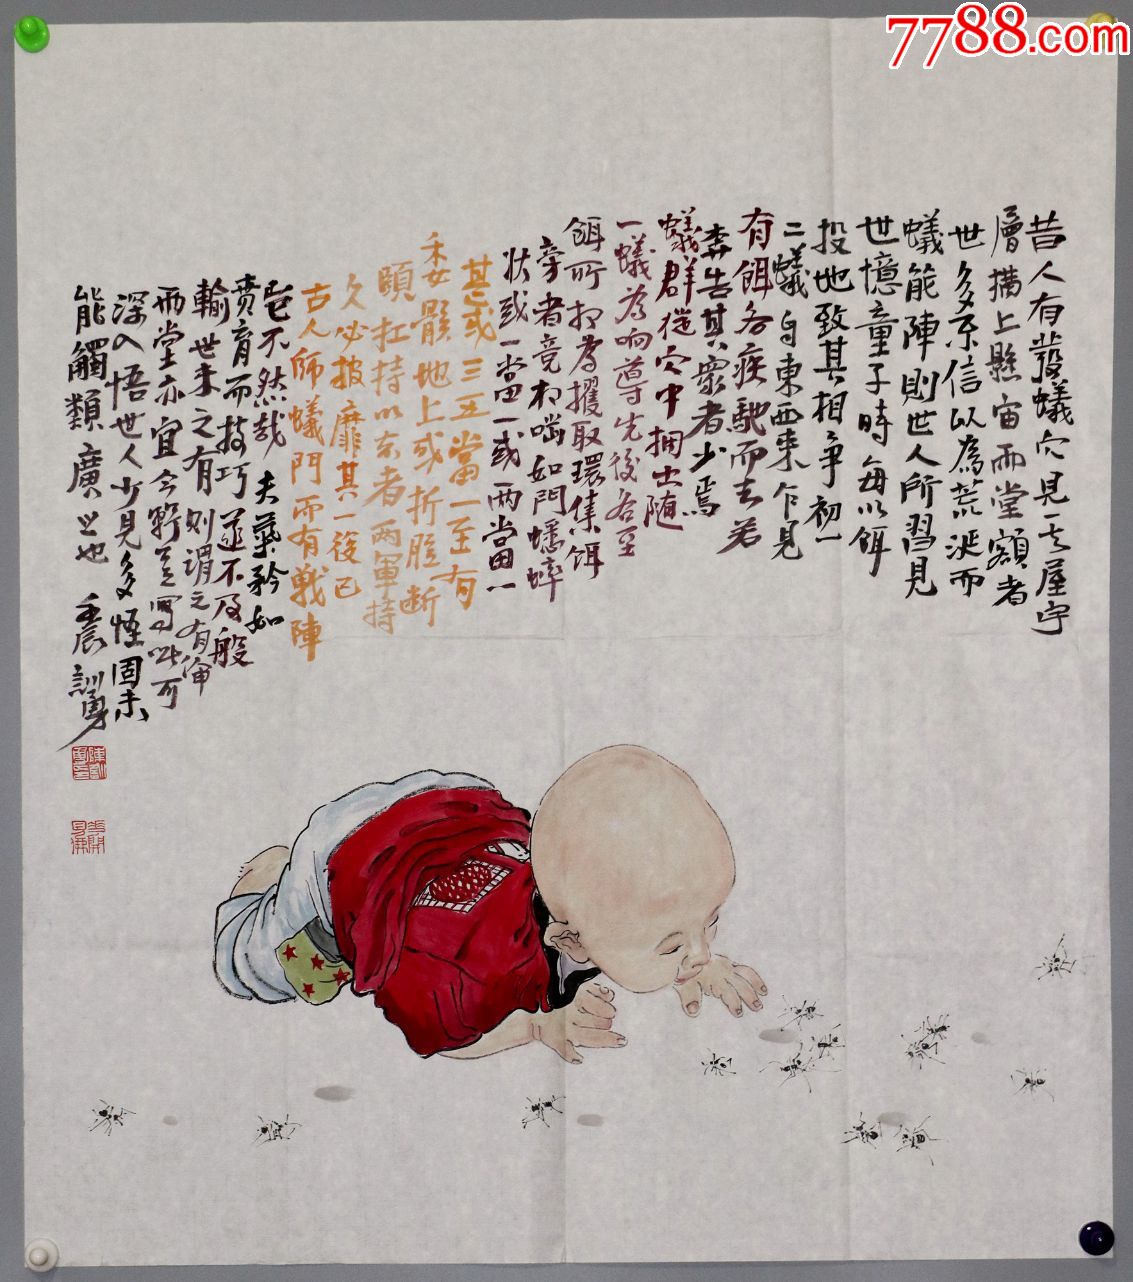 7788.com
昔人有發蟻穴見其屋宇
層構上懸宙而堂額者
世多不信以為荒誕而
蟻能陣則世人所習見
世憶童子時每以餌
投地致其相爭初一
二蟻自東西來乍見
有餌各疾馳而去若
奔告其眾者少焉
蟻群從穴中擁出隨
一蟻為向導先後各至
餌所相為攫取環集餌
旁者竟相嚙如鬥蟋蟀
狀或一當一或兩當一
其或三五當一至有
委骸地上或折脰斷
頤扛持以去者兩軍持
久必披靡其一後已
古人師蟻鬥而有戰陣
豈不然哉 夫氣矜如
賁育而技巧並不及般
輸世未之有 則謂之有
而堂亦宜今 寫此可
深入悟世人少見多怪固未
能觸類廣之也 壬辰 訓勇